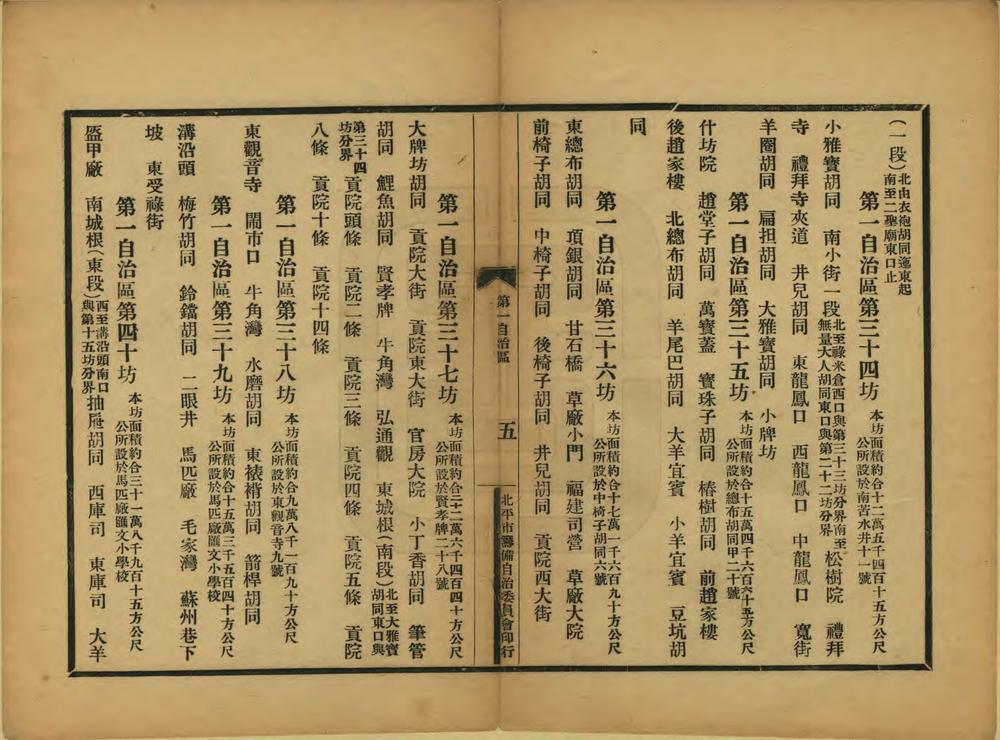 (一段)北由衣袍胡同迤東起南至二聖廟東口止
第一自治區第三十四坊 本坊面積約合十二萬五千四百十五方公尺公所設於南苦水井十一號
小雅寶胡同 南小街一段北至祿米倉西口與第三十三坊分界南至無量大人胡同東口與第二十二坊分界 松樹院 禮拜
寺 禮拜寺夾道 井兒胡同 東龍鳳口 西龍鳳口 中龍鳳口 寬街
羊圈胡同 扁担胡同 大雅寶胡同 小牌坊
第一自治區第三十五坊 本坊面積約合十五萬四千六百六十五方公尺公所設於總布胡同甲二十號
什坊院 趙堂子胡同 萬寶蓋 寶珠子胡同 椿樹胡同 前趙家樓
後趙家樓 北總布胡同 羊尾巴胡同 大羊宜賓 小羊宜賓 豆坑胡
同
第一自治區第三十六坊 本坊面積約合十七萬一千六百九十方公尺公所設於中椅子胡同六號
東總布胡同 項銀胡同 甘石橋 草廠小門 福建司營 草廠大院
前椅子胡同 中椅子胡同 後椅子胡同 井兒胡同 貢院西大街
第一自治區 五 北平市籌備自治委員會印行
第一自治區第三十七坊 本坊面積約合二十二萬六千四百四十方公尺公所設於賢孝牌二十八號
大牌坊胡同 貢院大街 貢院東大街 官房大院 小丁香胡同 筆管
胡同 鯉魚胡同 賢孝牌 牛角灣 弘通觀 東城根(南段)北至大雅寶胡同東口與
第三十四坊分界 貢院頭條 貢院二條 貢院三條 貢院四條 貢院五條 貢院
八條 貢院十條 貢院十四條
第一自治區第三十八坊 本坊面積約合九萬八千一百九十方公尺公所設於東觀音寺九號
東觀音寺 鬧市口 牛角灣 水磨胡同 東裱褙胡同 箭桿胡同
第一自治區第三十九坊 本坊面積約合十五萬三千五百四十方公尺公所設於馬匹廠匯文小學校
溝沿頭 梅竹胡同 鈴鐺胡同 二眼井 馬匹廠 毛家灣 蘇州巷下
坡 東受祿街
第一自治區第四十坊 本坊面積約合三十一萬八千九百十五方公尺公所設於馬匹廠匯文小學校
盔甲廠 南城根(東段)西至溝沿頭南口與第十五坊分界 抽屜胡同 西庫司 東庫司 大羊